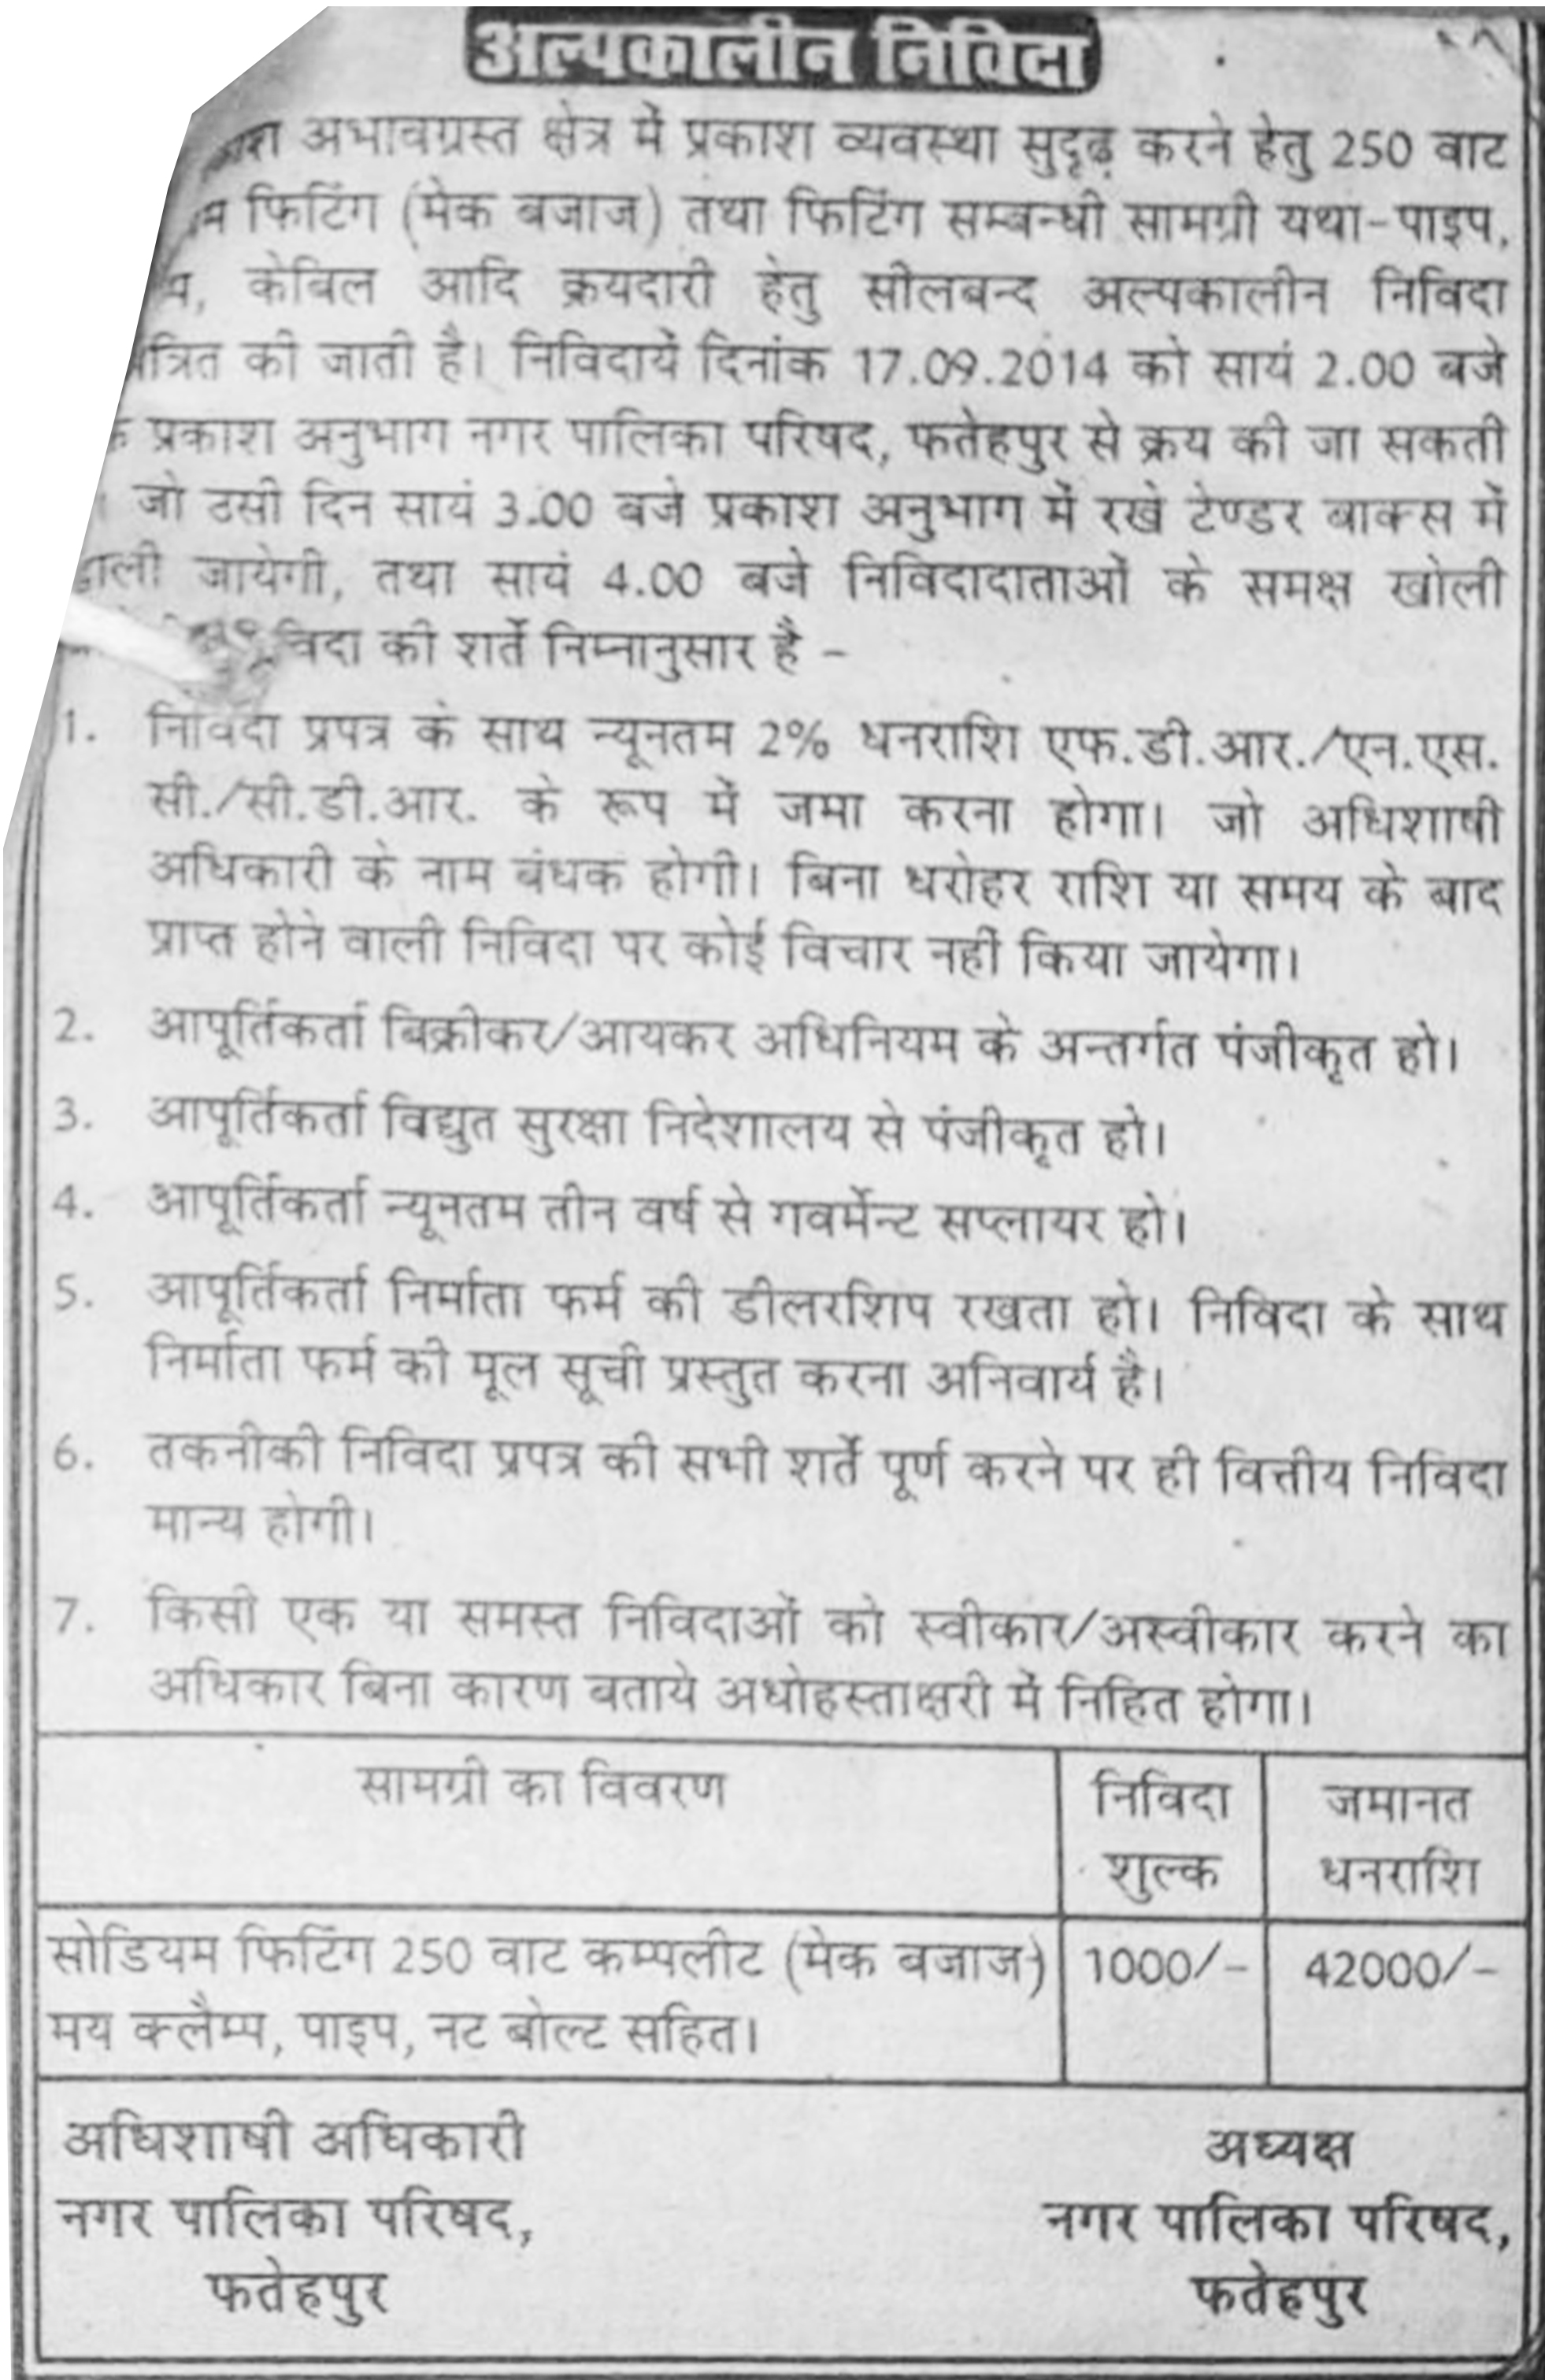 अल्पकालीन निविदा
अभावग्रस्त क्षेत्र में प्रकाश व्यवस्था सुदृढ़ करने हेतु 250 वाट
फिटिंग (मेक बजाज) तथा फिटिंग सम्बन्धी सामग्री यथा-पाइप,
केबिल आदि क्रयदारी हेतु सीलबन्द अल्पकालीन निविदा
की जाती है। निविदायें दिनांक 17.09.2014 को सायं 2.00 बजे
प्रकाश अनुभाग नगर पालिका परिषद, फतेहपुर से क्रय की जा सकती
जो उसी दिन सायं 3.00 बजे प्रकाश अनुभाग में रखे टेण्डर बाक्स में
जायेगी, तथा सायं 4.00 बजे निविदादाताओं के समक्ष खोली
की शर्ते निम्नानुसार है -
1. निविदा प्रपत्र के साथ न्यूनतम 2% धनराशि एफ.डी.आर./एन.एस.
सी./सी.डी.आर. के रूप में जमा करना होगा। जो अधिशाषी
अधिकारी के नाम बंधक होगी। बिना धरोहर राशि या समय के बाद
प्राप्त होने वाली निविदा पर कोई विचार नहीं किया जायेगा।
2. आपूर्तिकर्ता बिक्रीकर/आयकर अधिनियम के अन्तर्गत पंजीकृत हो।
3. आपूर्तिकर्ता विद्युत सुरक्षा निदेशालय से पंजीकृत हो।
4. आपूर्तिकर्ता न्यूनतम तीन वर्ष से गवर्मेन्ट सप्लायर हो।
5. आपूर्तिकर्ता निर्माता फर्म की डीलरशिप रखता हो। निविदा के साथ
निर्माता फर्म की मूल सूची प्रस्तुत करना अनिवार्य है।
6. तकनीकी निविदा प्रपत्र की सभी शर्ते पूर्ण करने पर ही वित्तीय निविदा
मान्य होगी।
7. किसी एक या समस्त निविदाओं को स्वीकार/अस्वीकार करने का
अधिकार बिना कारण बताये अधोहस्ताक्षरी में निहित होगा।
सामग्री का विवरण निविदा जमानत
शुल्क धनराशि
सोडियम फिटिंग 250 वाट कम्पलीट (मेक बजाज) 1000/- 42000/-
मय क्लैम्प, पाइप, नट बोल्ट सहित।
अधिशाषी अधिकारी अध्यक्ष
नगर पालिका परिषद, नगर पालिका परिषद,
फतेहपुर फतेहपुर